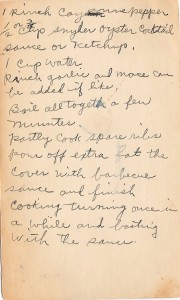 1 Pinch Cayenne pepper
1 or 2
½ Cup Snyder Oyster Cocktail
sauce or Ketchup.
1 Cup Water
Pinch garlic and mace can
be added if like,
Boil all togeth a few
minutes.
Partly Cook spare ribs
pour off extra fat the
cover with barbecue
sauce and finish
cooking turning once in
a while and basting
With the sauce.